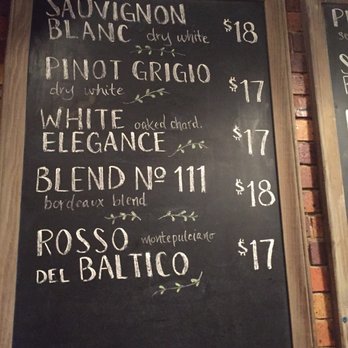 SAUVIGNON
BLANC dry white $18
PINOT GRIGIO
dry white $17
WHITE oaked chard.
ELEGANCE $17
BLEND Nº 111
bordeaux blend $18
ROSSO montepulciano $17
DEL BALTICO